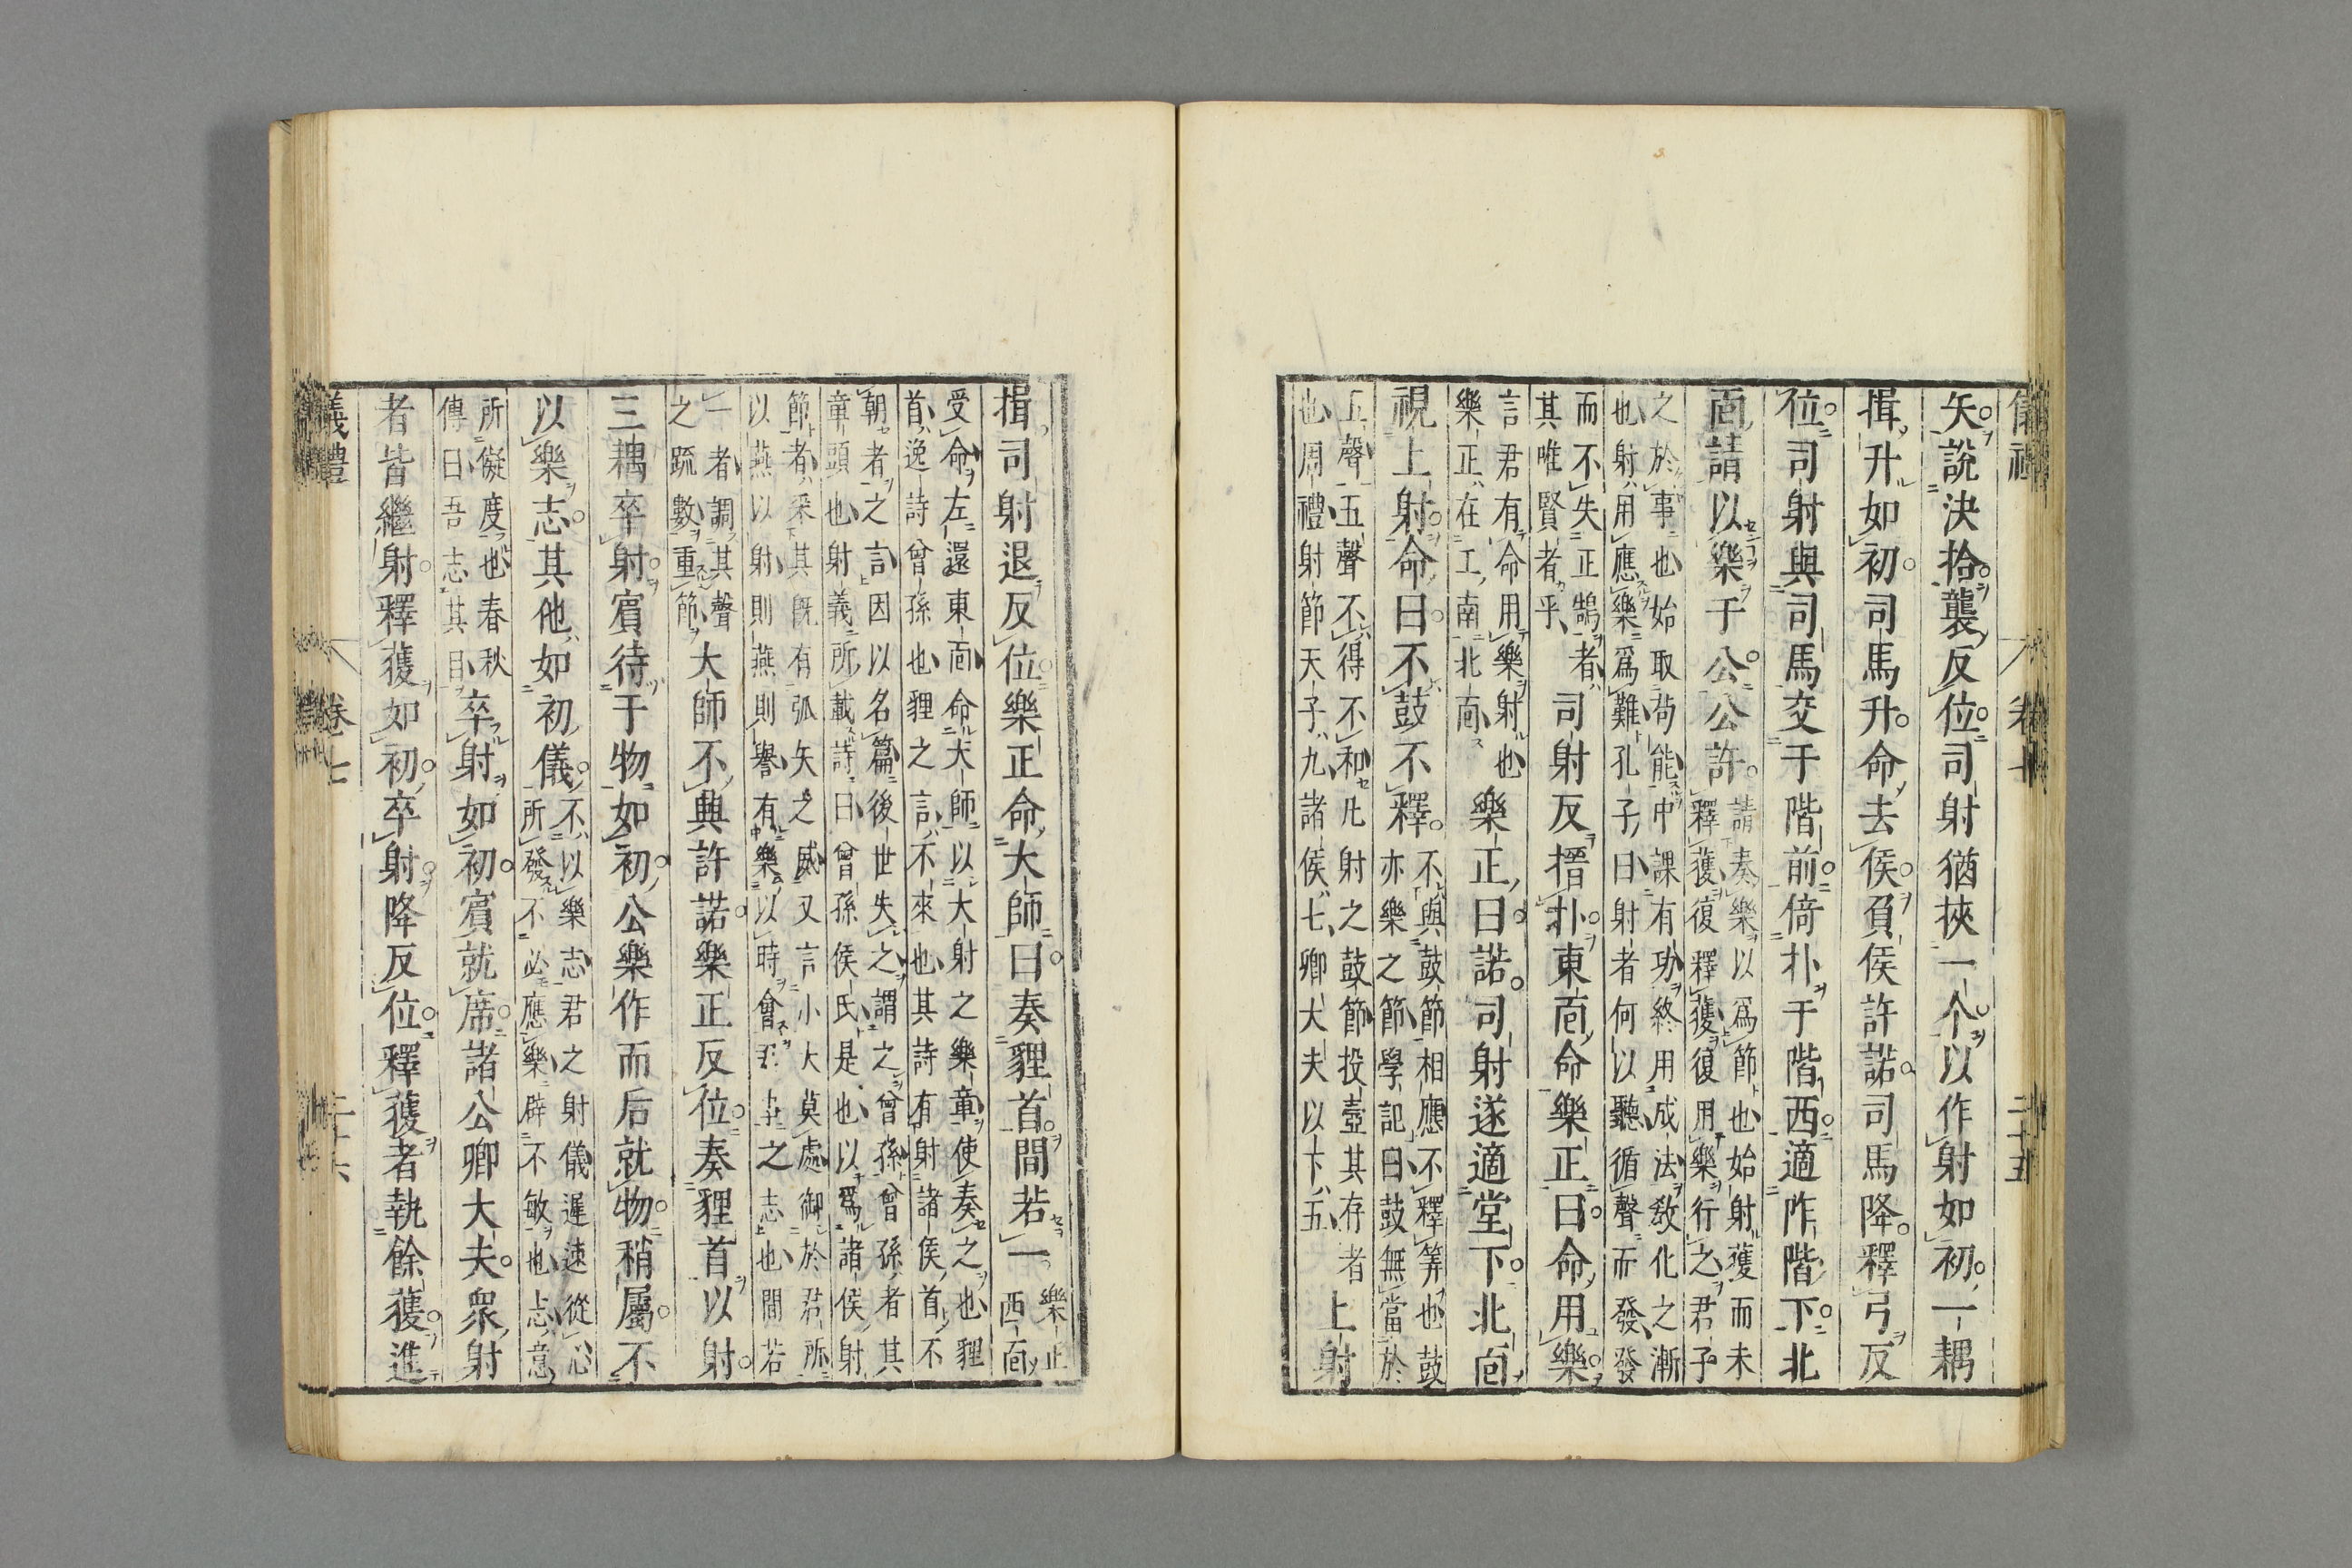 儀禮 卷七 二十五
矢說決拾襲反位司射猶挾一个以作射如初一耦
揖升如初司馬升命去侯負侯許諾司馬降釋弓反
位司射與司馬交于階前倚扑于階西適阼階下北
面請以樂于公公許
請奏樂以爲節也始射獲而未
釋獲復釋獲復用樂行之君子
之於事也始取苟能中課有功終用成法敎化之漸
也射用應樂爲難孔子曰射者何以聽循聲而發發
而不失正鵠者
其唯賢者乎
司射反搢扑東面命樂正曰命用樂
言君有命用樂射也
樂正在工南北面
樂正曰諾司射遂適堂下北面
視上射命曰不鼓不釋
不與鼓節相應不釋筭也鼓
亦樂之節學記曰鼓無當於
五聲五聲不得不和凡射之鼓節投壺其存者
也周禮射節天子九諸侯七卿大夫以下五
上射
揖司射退反位樂正命大師曰奏貍首間若一
樂正
西面
受命左還東面命大師以大射之樂章使奏之也貍
首逸詩曾孫也貍之言不來也其詩有射諸侯首不
朝者之言因以名篇後世失之謂之曾孫曾孫者其
章頭也射義所載詩曰曾孫侯氏是也以爲諸侯射
節者采其旣有弧矢之威又言小大莫處御於君所
以燕以射則燕則譽有樂以時會君事之志也間若
一者調其聲
之疏數重節
大師不興許諾樂正反位奏貍首以射
三耦卒射賓待于物如初公樂作而后就物稍屬不
以樂志其他如初儀
不以樂志君之射儀遲速從心
所發不必應樂辟不敏也志意
所儗度也春秋
傳曰吾志其目
卒射如初賓就席諸公卿大夫衆射
者皆繼射釋獲如初卒射降反位釋獲者執餘獲進
儀禮 卷七 二十六